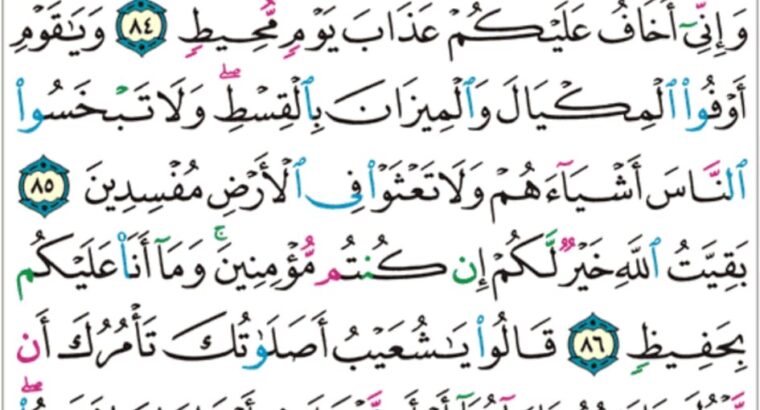 وَإِنِّىٓ أَخَافُ عَلَيْكُمْ عَذَابَ يَوْمٍ مُّحِيطٍ ٨٤ وَيَٰقَوْمِ
أَوْفُوا۟ ٱلْمِكْيَالَ وَٱلْمِيزَانَ بِٱلْقِسْطِ ۖ وَلَا تَبْخَسُوا۟
ٱلنَّاسَ أَشْيَآءَهُمْ وَلَا تَعْثَوْا۟ فِى ٱلْأَرْضِ مُفْسِدِينَ ٨٥
بَقِيَّتُ ٱللَّهِ خَيْرٌ لَّكُمْ إِن كُنتُم مُّؤْمِنِينَ ۚ وَمَآ أَنَا۠ عَلَيْكُم
بِحَفِيظٍ ٨٦ قَالُوا۟ يَٰشُعَيْبُ أَصَلَوٰتُكَ تَأْمُرُكَ أَن